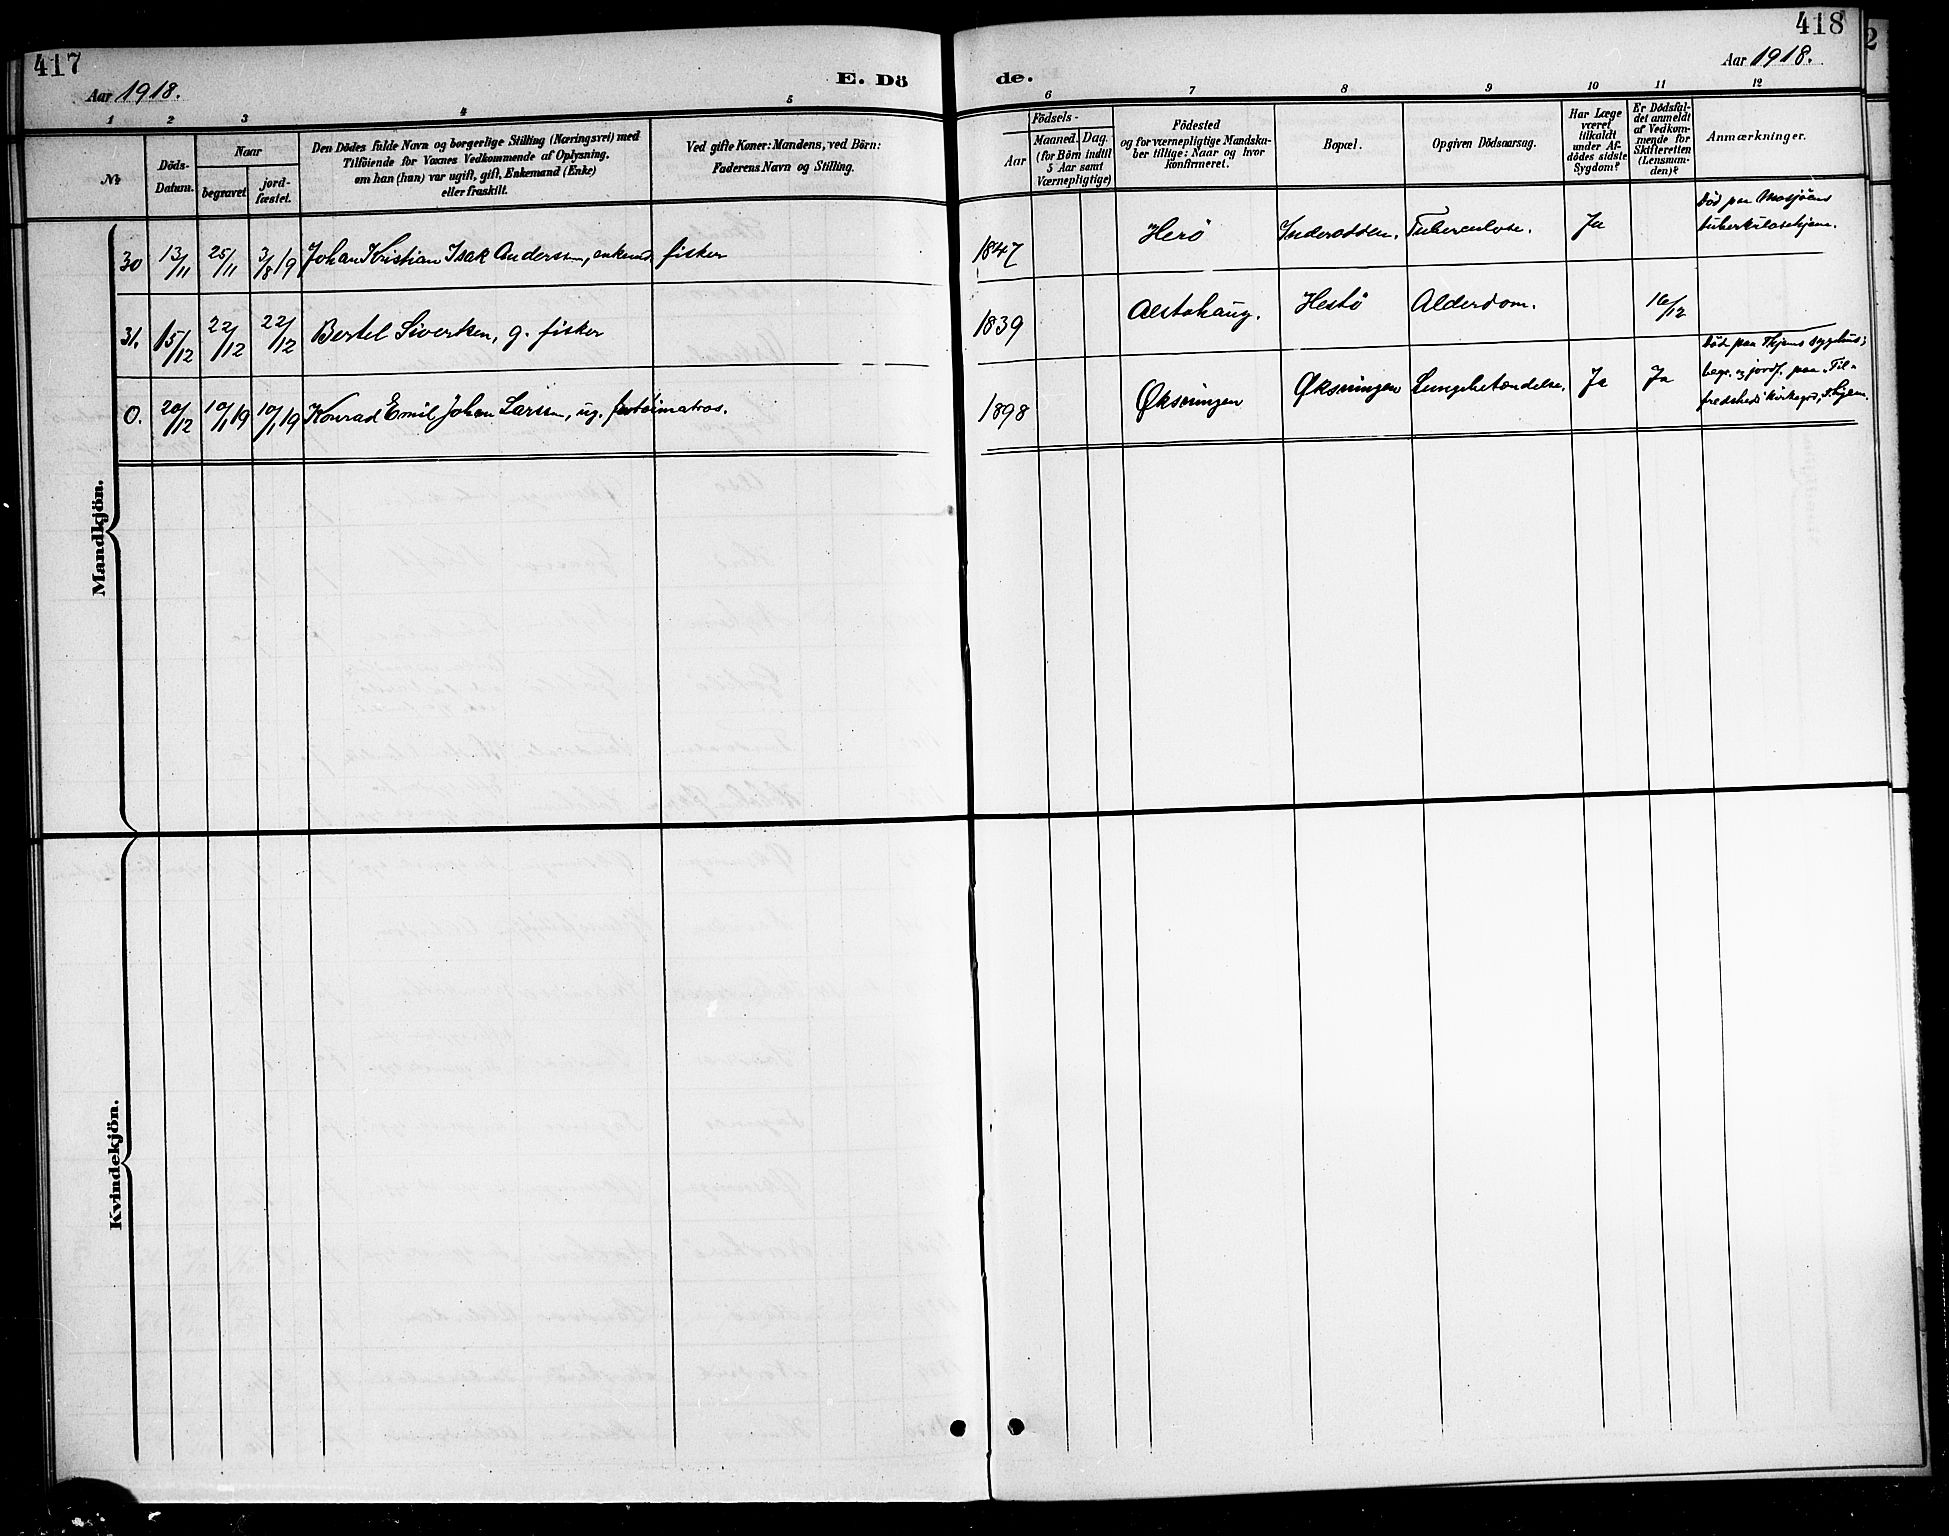 417
Aar 1918.
E. Dö
1 2 3 4 5
№
Döds-
Datum.
Naar
begravet
jord-
fæstet.
Den Dödes fulde Navn og borgerlige Stilling (Næringsvei) med
Tilföiende for Voxnes Vedkommende af Oplysning,
om han (hun) var ugift, gift, Enkemand (Enke)
eller fraskilt.
Ved gifte Koner: Mandens, ved Börn:
Faderens Navn og Stilling.
Mandkjön.
30 13/11 25/11 3/8 19 Johan Kristian Isak Anderssen, enkemd. fisker
31. 15/12 22/12 22/12 Bertel Sivertsen, g. fisker
0. 20/12 10/1 19 10/1 19 Konrad Emil Johan Larssen, ug. matros.
Kvindekjön.
418
Aar 1918.
de.
6 7 8 9 10 11 12
Födsels-
Aar
Maaned. Dag.
(for Börn indtil
5 Aar samt
Værnepligtige)
Födested
og for værnepligtige Mandska-
ber tillige: Naar og hvor
konfirmeret.
Bopæl.
Opgiven Dödsaarsag.
Har Læge
været
tilkaldt
under Af-
dödes sidste
Sygdom?
Er Dödsfal-
det anmeldt
af Vedkom-
mende for
Skifteretten
(Lensman-
den)?
Anmærkninger.
1847 Herö Inderodden. Tuberculose. Ja Död paa Mosjöens
tuberkulosehjem.
1839 Alstahaug. Hestö Alderdom. 16/12
1898 Øksningen Øksningen Lungebetændelse. Ja Ja Död paa Thjems sygehus;
begr. og jordf. paa "Til-
fredshed" kirkegd, T.hjem.
2